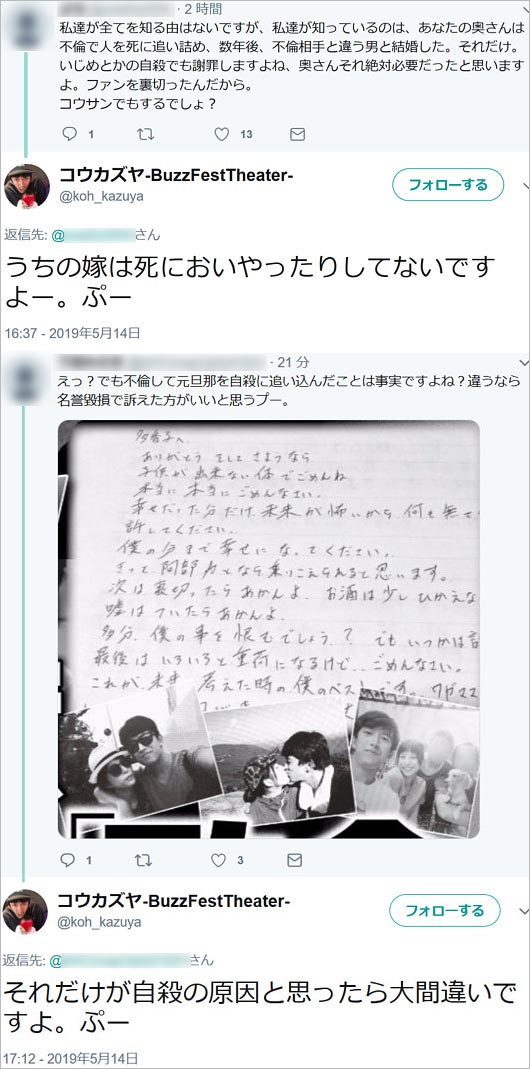 ・2 時間
私達が全てを知る由はないですが、私達が知っているのは、あなたの奥さんは
不倫で人を死に追い詰め、数年後、不倫相手と違う男と結婚した。それだけ。
いじめとかの自殺でも謝罪しますよね、奥さんそれ絶対必要だったと思います
よ。ファンを裏切ったんだから。
コウサンでもするでしょ？
1 13
コウカズヤ-BuzzFestTheater-
@koh_kazuya
フォローする
返信先: @ さん
うちの嫁は死においやったりしてないです
よー。ぷー
16:37 - 2019年5月14日
・21 分
えっ？でも不倫して元旦那を自殺に追い込んだことは事実ですよね？違うなら
名誉毀損で訴えた方がいいと思うプー。
多香子へ
ありがとう そして さようなら
子供が出来ない体でごめんね
本当に 本当に ごめんなさい。
幸せだった分だけ 未来が怖いから 何も無
許してください。
僕の分まで幸せになってください。
きっと 阿部 となら乗りこえられると思います。
次は裏切ったらあかんよ。お酒は少しひかえな
嘘はついたらあかんよ。
多分、僕の事を恨むでしょう？ でも いつかは
最後は いろいろと重荷になるけど ごめんなさい。
これが、未来 考えた時の 僕のベストです。
1 3
コウカズヤ-BuzzFestTheater-
@koh_kazuya
フォローする
返信先: @ さん
それだけが自殺の原因と思ったら大間違いで
すよ。ぷー
17:12 - 2019年5月14日